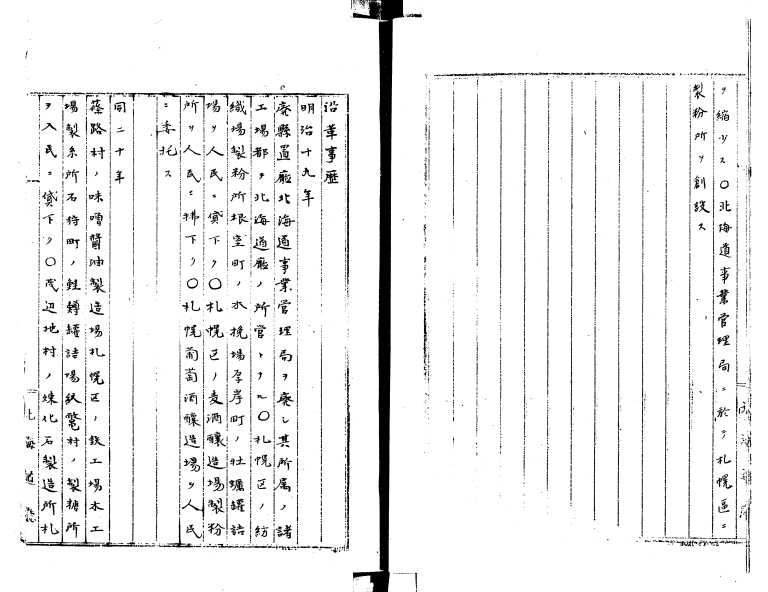 ヲ縮少ス〇北海道事業管理局ニ於テ札幌區ニ
製粉所ヲ創設ス
沿革事歴
明治十九年
廃縣置廳北海道事業管理局ヲ廃し其所属ノ諸
工場都テ北海道廳ノ所管トナル〇札幌区ノ紡
織場製粉所根室町ノ木挽場厚岸町ノ牡蠣罐詰
場ヲ人民ニ貸下ク〇札幌区ノ麦酒醸造場製粉
所ヲ人民ニ拂下ク〇札幌葡萄酒醸造場ヲ人民
ニ委托ス
同二十年
篠路村ノ味噌醤油製造場札幌区ノ鉄工場木工
場製糸所石狩町ノ鮭鱒罐詰場紋鼈村ノ製糖所
ヲ人民ニ貸下ク〇茂辺地村ノ煉化石製造所札
北海道廳